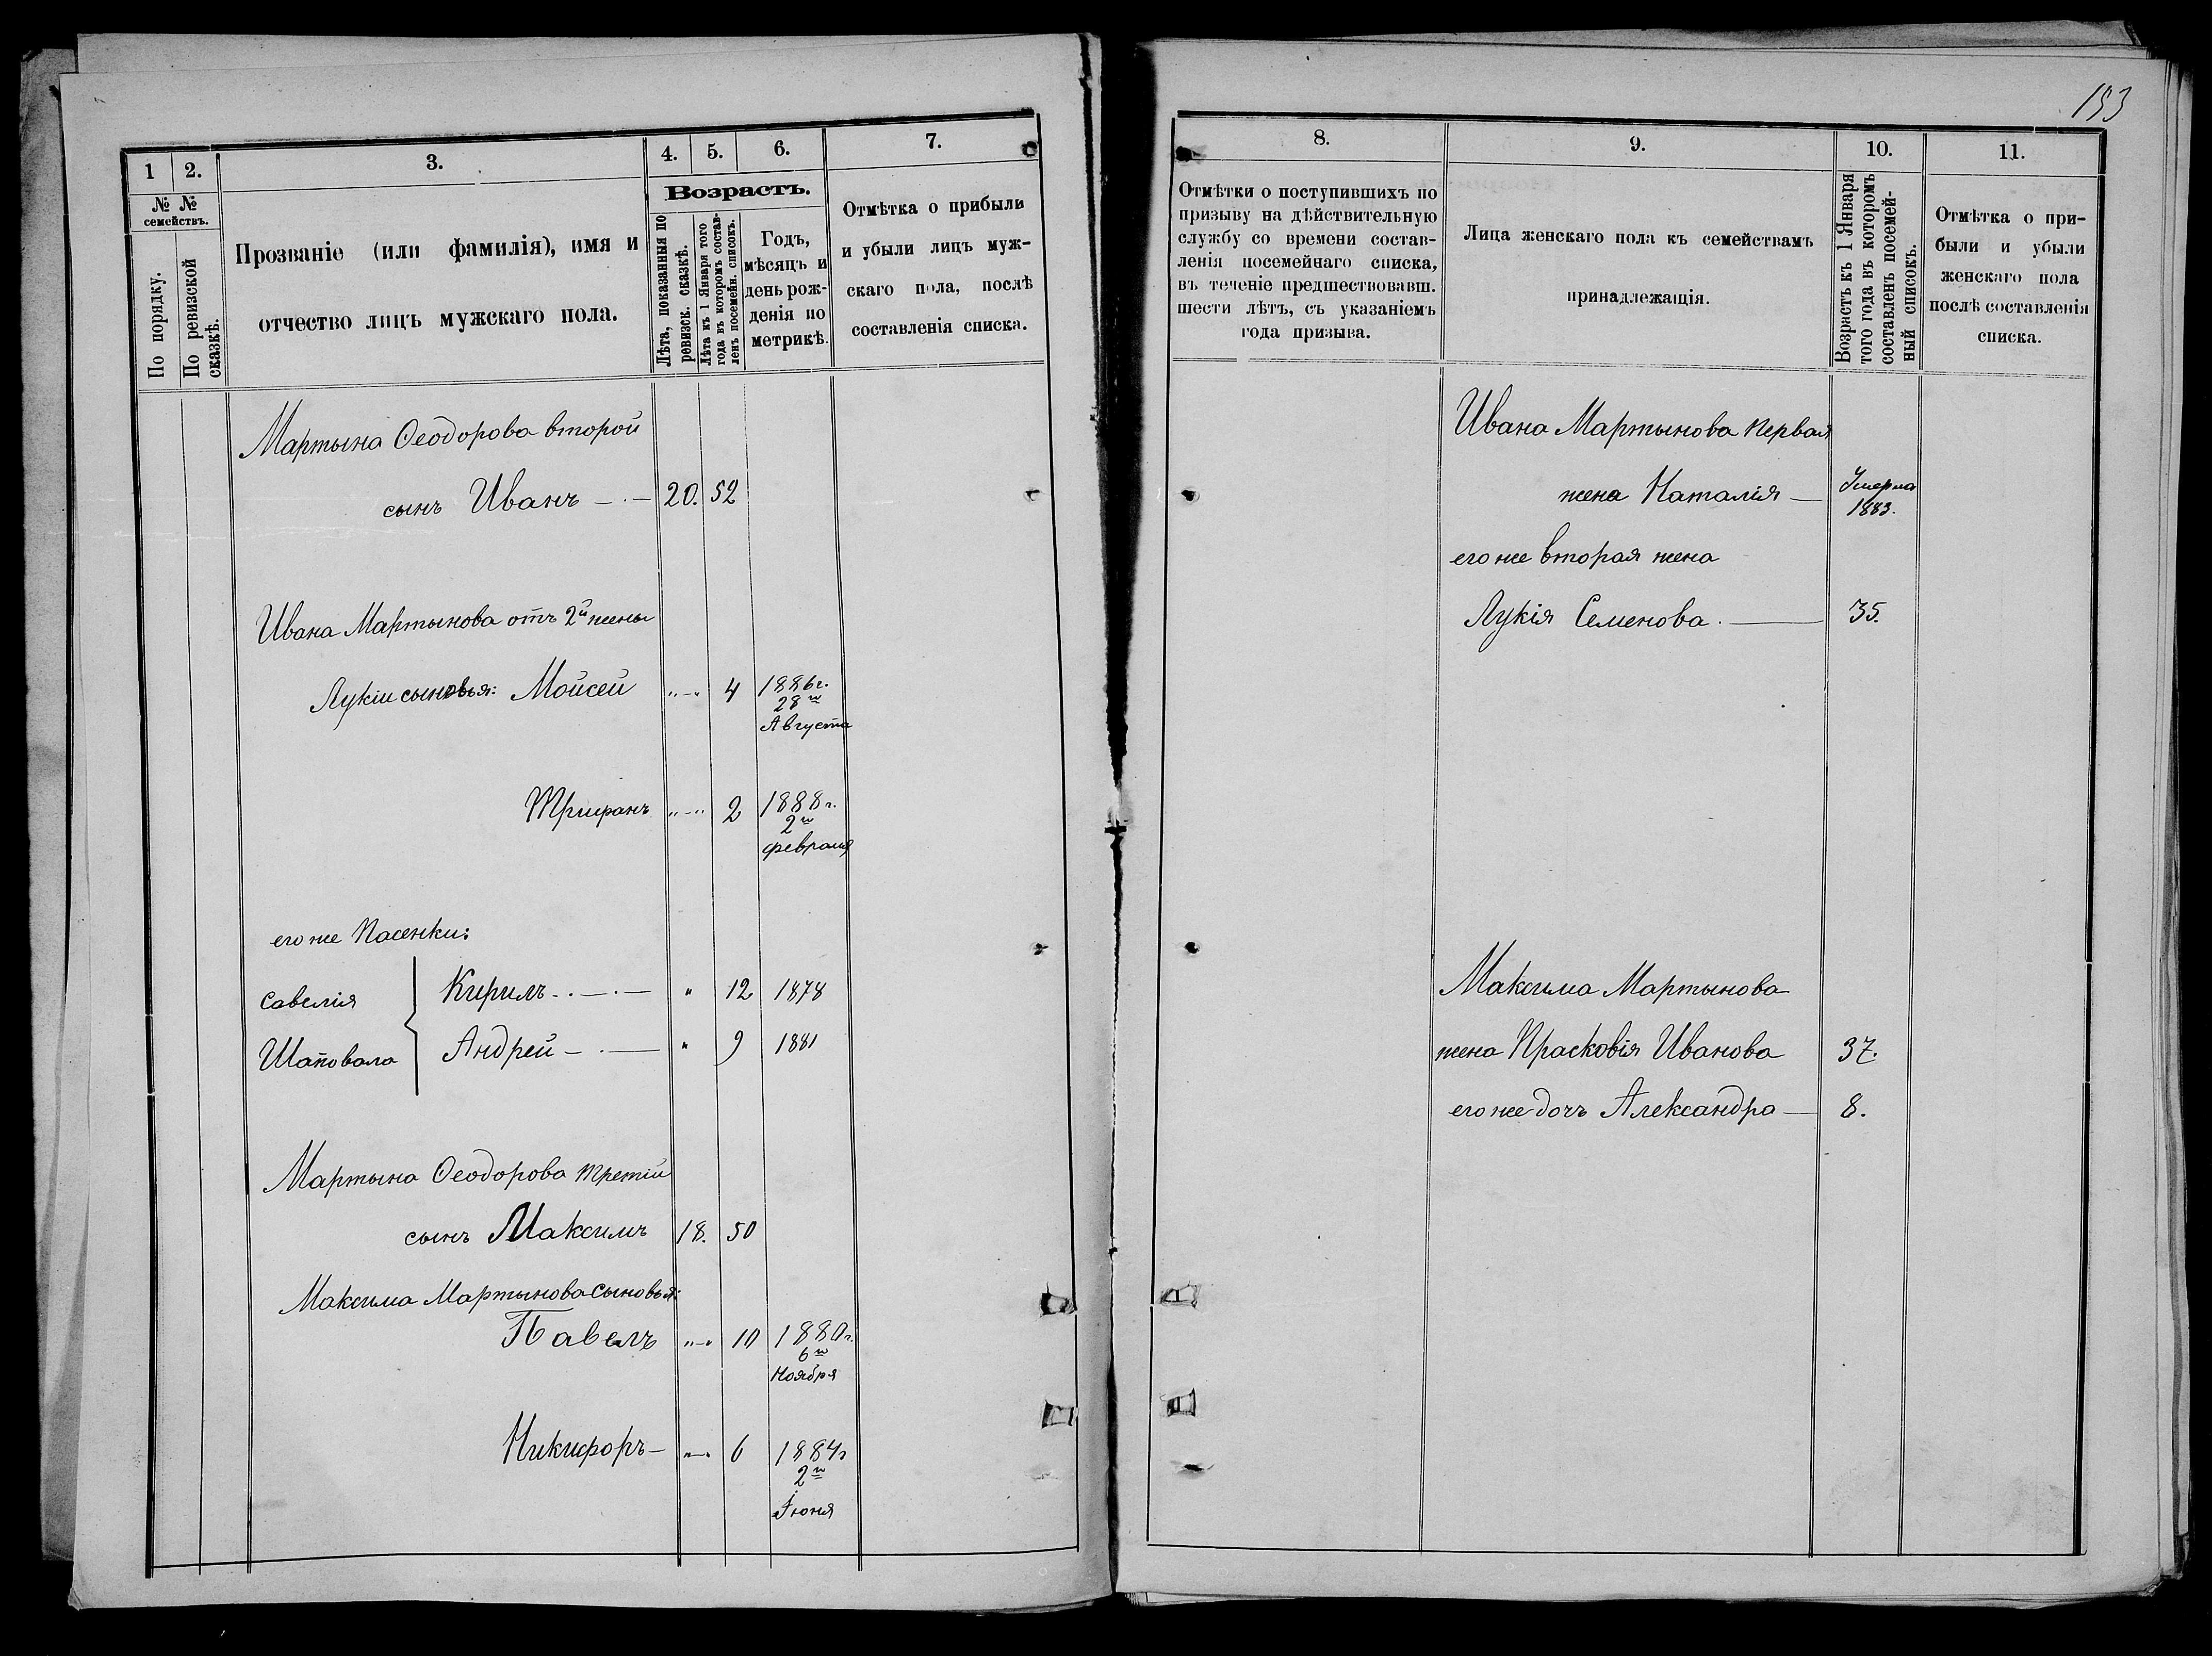 1
2.
3.
4.
5.
6.
7.
№ №
семействъ.
По порядку.
По ревизской
сказкѣ.
Прозваніе (или фамилія), имя и
отчество лицъ мужскаго пола.
Возрастъ.
Лѣта, показанныя по
ревизск. сказкѣ.
Лѣта къ 1 Января того
года въ которомъ состав-
ленъ посемейн. списокъ.
Годъ,
мѣсяцъ и
день рож-
денія по
метрикѣ.
Отмѣтка о прибыли
и убыли лицъ муж-
скаго пола, послѣ
составленія списка.
Мартына Ѳеодорова второй
сынъ Иванъ — · — 20. 52
Ивана Мартынова отъ 2й жены
Лукіи сыновья: Мойсей „—„ 4 1886г.
28го
Августа
Трифанъ „—„ 2 1888г.
2го
февраля
его же Пасенки:
Савелія Кирилъ - . — . — „ 12 1878
Шаповала Андрей - . — „ 9 1881
Мартына Ѳеодорова третій
сынъ Максимъ 18. 50
Максима Мартынова сыновья:
Павелъ „—„ 10 1880г.
6го
Ноября
Никифоръ — „—„ 6 1884г
2го
Іюня
153
8.
9.
10.
11.
Отмѣтки о поступившихъ по
призыву на дѣйствительную
службу со времени состав-
ленія посемейнаго списка,
въ теченіе предшествовавш.
шести лѣтъ, съ указаніемъ
года призыва.
Лица женскаго пола къ семействамъ
принадлежащія.
Возрастъ къ 1 Января
того года въ которомъ
составленъ посемей-
ный списокъ.
Отмѣтка о при-
были и убыли
женскаго пола
послѣ составленія
списка.
Ивана Мартынова первая
жена Наталія — Умерла
1883.
его же вторая жена
Лукія Семенова. — 35.
Максима Мартынова
жена Прасковія Иванова 37.
его же дочь Александра — 8.